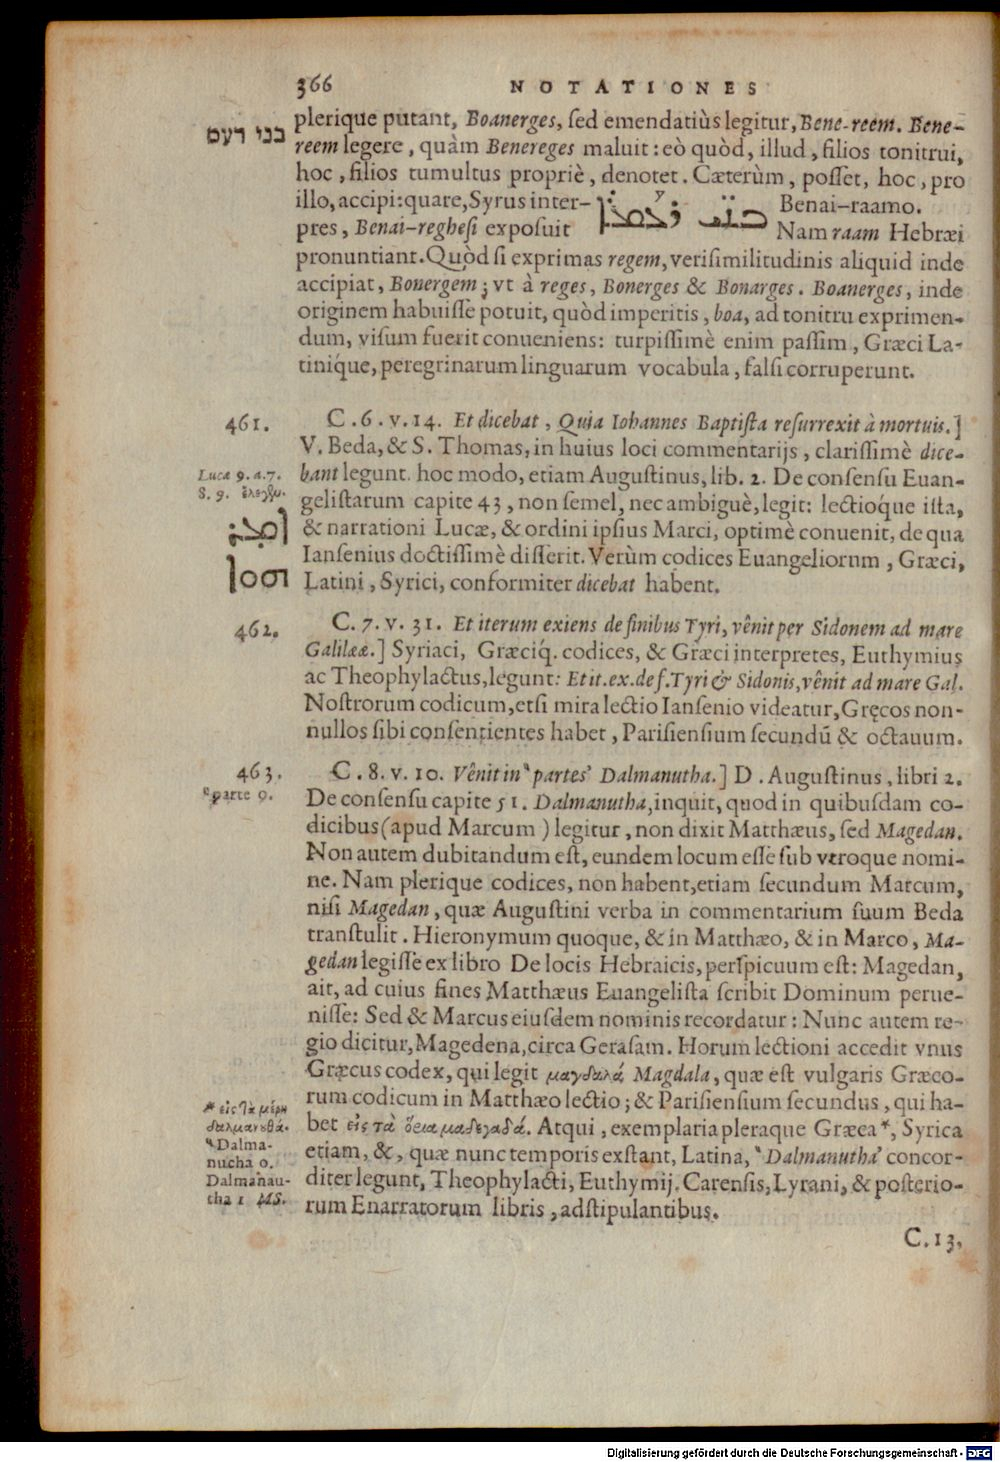 366 NOTATIONES
plerique putant, Boanerges, ſed emendatiùs legitur, Bene-reem. Bene-
בני רעם
reem legere, quàm Benereges maluit: eò quòd, illud, filios tonitrui,
hoc, filios tumultus propriè, denotet. Cæterùm, poſſet, hoc, pro
illo, accipi: quare, Syrus inter- Benai-raamo.
pres, Benai-regheſi expoſuit Nam raam Hebræi
pronuntiant. Quòd ſi exprimas regem, veriſimilitudinis aliquid inde
accipiat, Bonergem; vt à reges, Bonerges & Bonarges. Boanerges, inde
originem habuiſſe potuit, quòd imperitis, boa, ad tonitru exprimen-
dum, viſum fuerit conueniens: turpiſſimè enim paſſim, Græci La-
tiniq́ue, peregrinarum linguarum vocabula, falſi corruperunt.
461. C. 6. v. 14. Et dicebat, Quia Iohannes Baptiſta reſurrexit à mortuis.]
V. Beda, & S. Thomas, in huius loci commentarijs, clariſſimè dice-
Lucæ 9. a. 7.
bant legunt. hoc modo, etiam Auguſtinus, lib. 2. De conſenſu Euan-
8. 9.
geliſtarum capite 43, non ſemel, nec ambiguè, legit: lectioq́ue iſta,
& narrationi Lucæ, & ordini ipſius Marci, optimè conuenit, de qua
Ianſenius doctiſſimè diſſerit. Verùm codices Euangeliorum, Græci,
Latini, Syrici, conformiter dicebat habent.
ܐܡܪ
ܗܘܐ
462. C. 7. v. 31. Et iterum exiens de finibus Tyri, vênit per Sidonem ad mare
Galilææ.] Syriaci, Græciq́. codices, & Græci interpretes, Euthymius
ac Theophylactus, legunt: Et it. ex. de f. Tyri & Sidonis, vênit ad mare Gal.
Noſtrorum codicum, etſi mira lectio Ianſenio videatur, Gręcos non-
nullos ſibi conſentientes habet, Pariſienſium ſecundũ & octauum.
463. C. 8. v. 10. Vênit in partes Dalmanutha.] D. Auguſtinus, libri 2.
parte 9.
De conſenſu capite 51. Dalmanutha, inquit, quod in quibuſdam co-
dicibus (apud Marcum) legitur, non dixit Matthæus, ſed Magedan.
Non autem dubitandum eſt, eundem locum eſſe ſub vtroque nomi-
ne. Nam plerique codices, non habent, etiam ſecundum Marcum,
niſi Magedan, quæ Auguſtini verba in commentarium ſuum Beda
tranſtulit. Hieronymum quoque, & in Matthæo, & in Marco, Ma-
gedan legiſſe ex libro De locis Hebraicis, perſpicuum eſt: Magedan,
ait, ad cuius fines Matthæus Euangeliſta ſcribit Dominum perue-
niſſe: Sed & Marcus eiuſdem nominis recordatur: Nunc autem re-
gio dicitur, Magedena, circa Geraſam. Horum lectioni accedit vnus
Græcus codex, qui legit μαγδαλά Magdala, quæ eſt vulgaris Græco-
rum codicum in Matthæo lectio; & Pariſienſium ſecundus, qui ha-
bet εἰς τὰ ὅρια μαδεγαδά. Atqui, exemplaria pleraque Græca*, Syrica
etiam, &, quæ nunc temporis exſtant, Latina, Dalmanutha concor-
diter legunt, Theophylacti, Euthymij, Carenſis, Lyrani, & poſterio-
rum Enarratorum libris, adſtipulantibus.
* εἰς τὰ μέρη
δαλμανουθά.
Dalma-
nucha 0.
Dalmanau-
tha 1 MS.
C. 13.
Digitalisierung gefördert durch die Deutsche Forschungsgemeinschaft - DFG